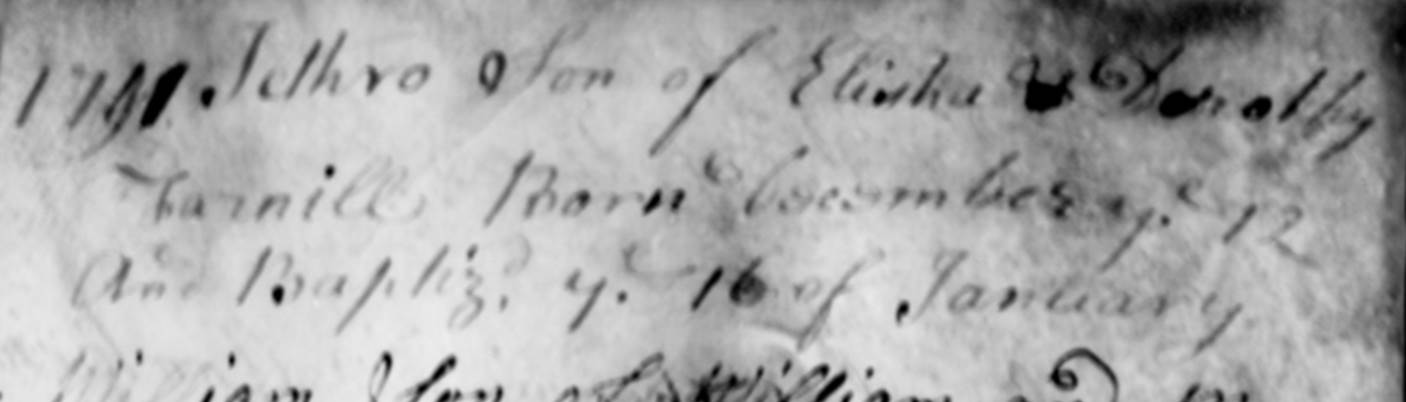 1741. Jethro Son of Elisha & Dorothy
Farnill Born December ye. 12
And Baptizd. ye. 16 of January
William Son of William